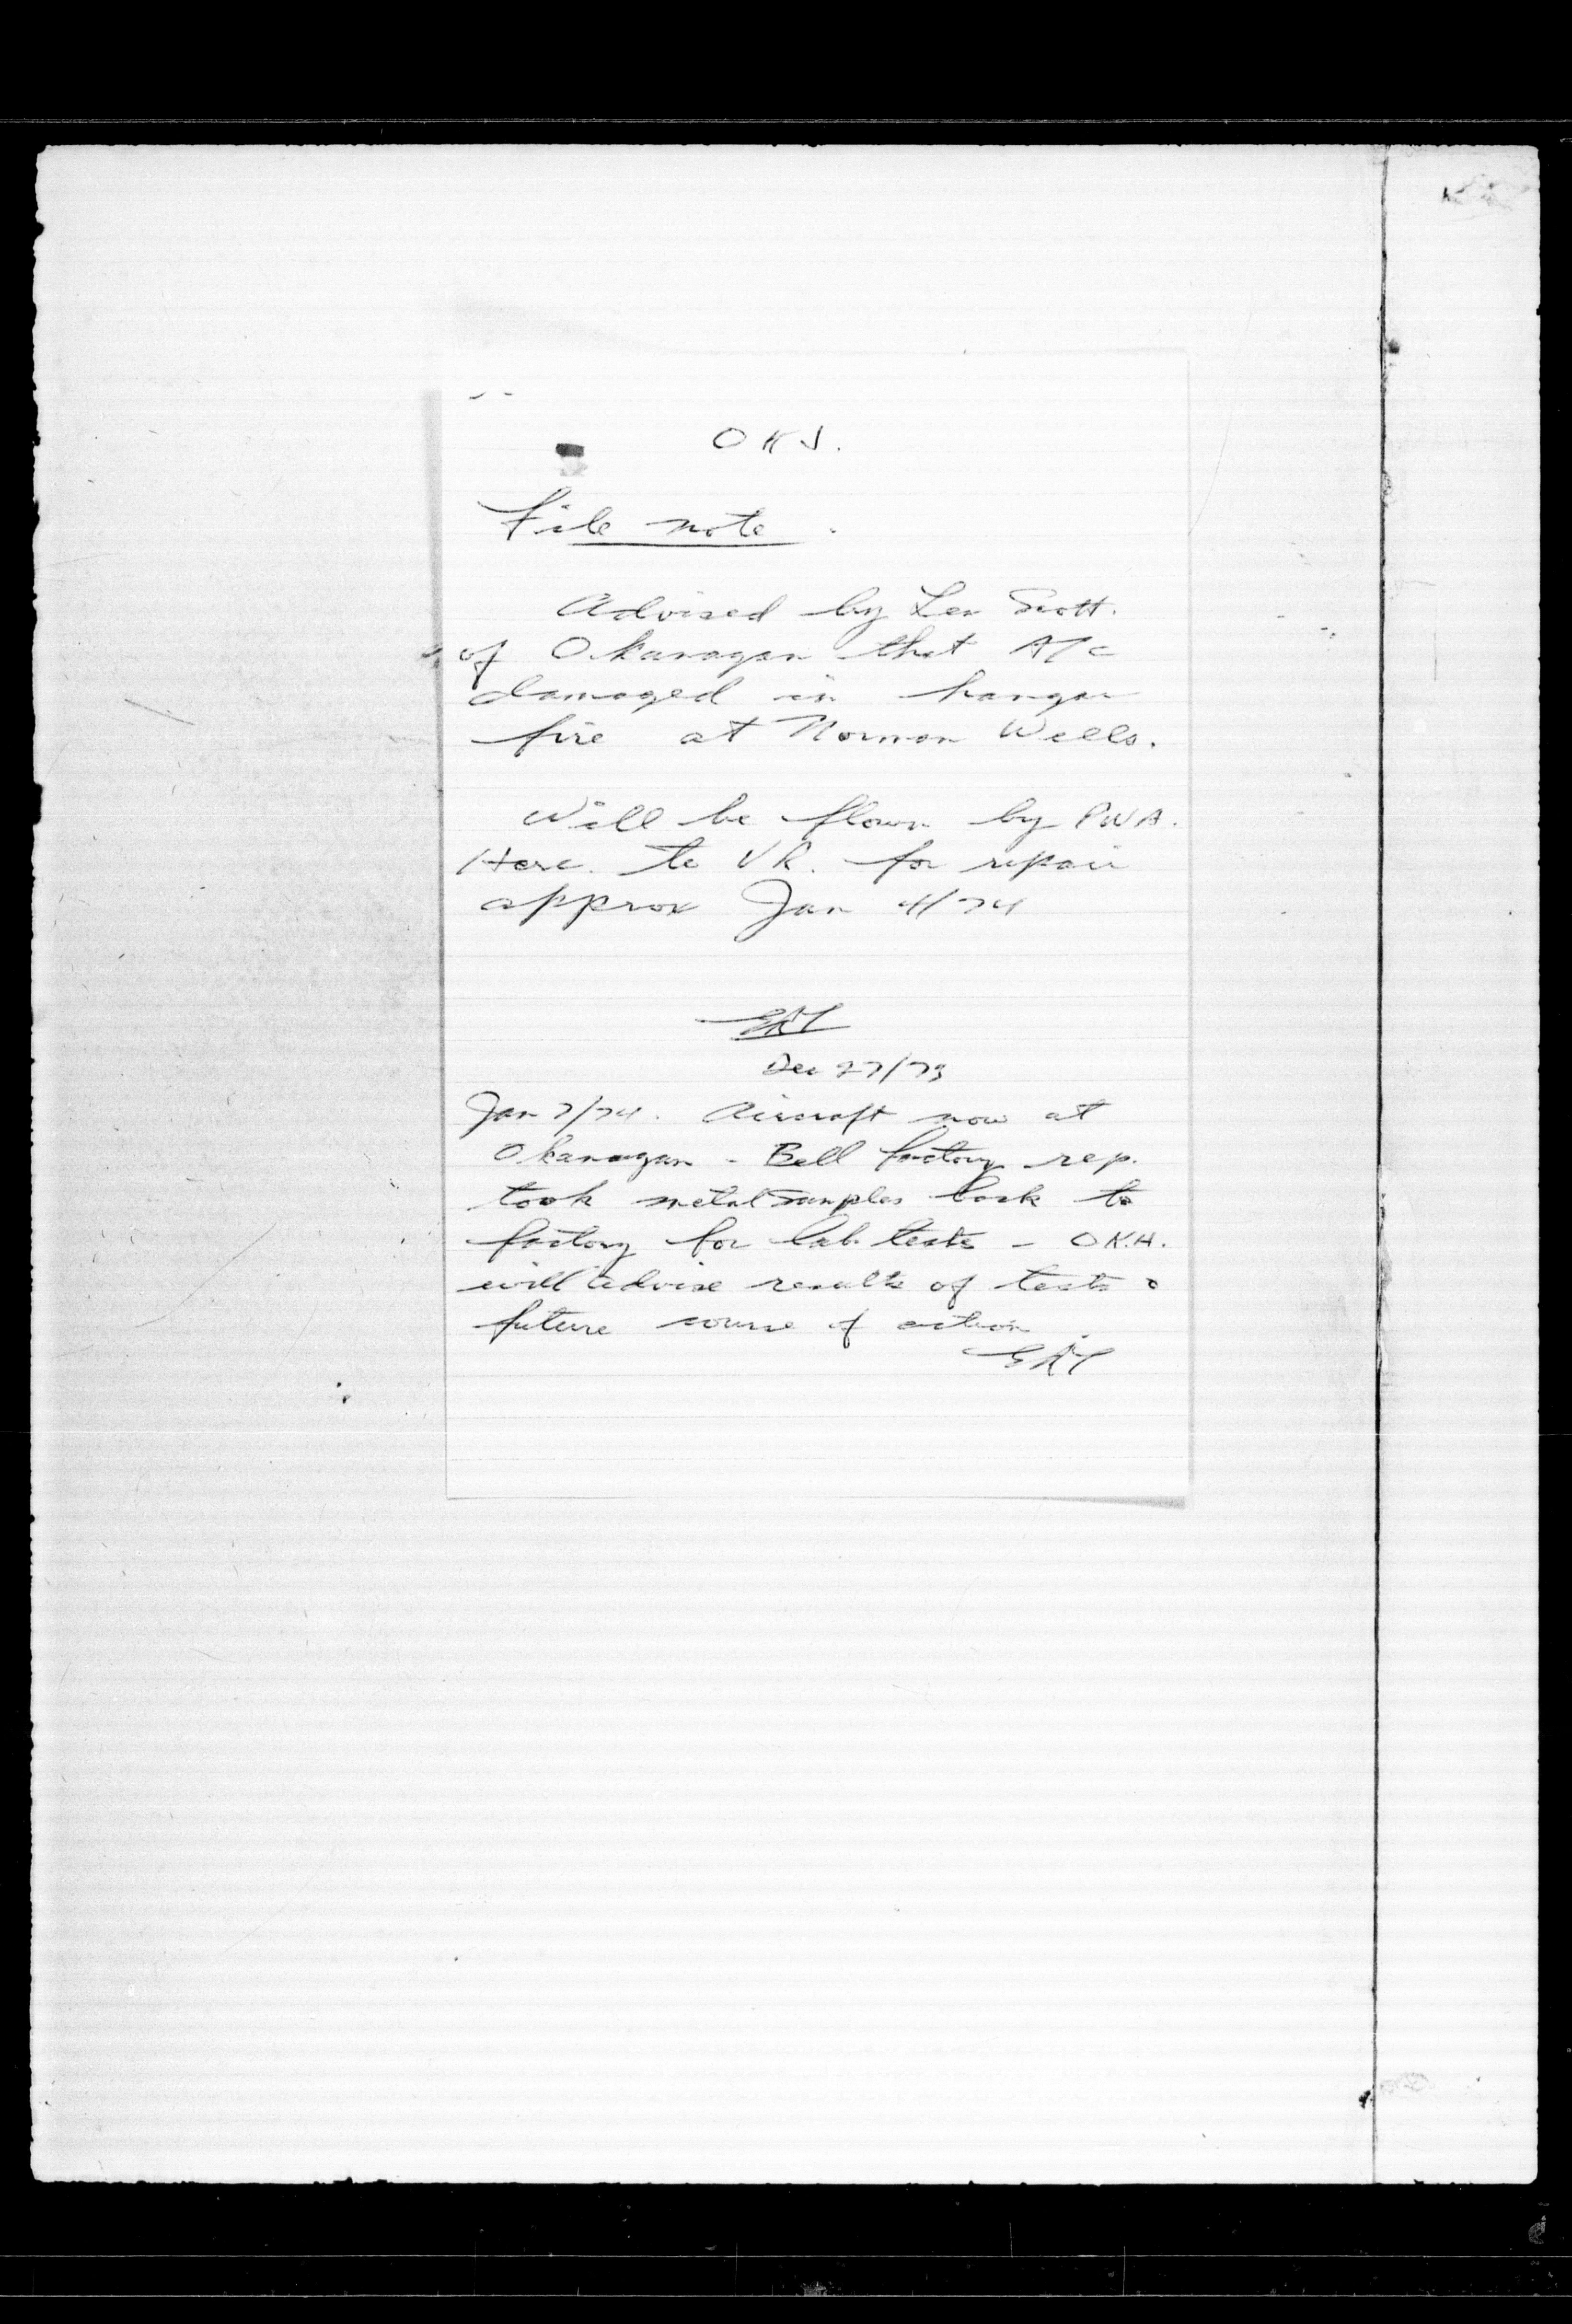 OKJ.
File note.
Advised by Len Scott.
of Okanagan that A/c
damaged in hangar
fire at Norman Wells.
Will be flown by PWA.
Herc. to VR. for repair
approx Jan 4/74
Dec 27/73
Jan 7/74. Aircraft now at
Okanagan - Bell factory rep.
took metal samples back to
factory for lab tests - OK.H.
will advise results of tests &
future course of action